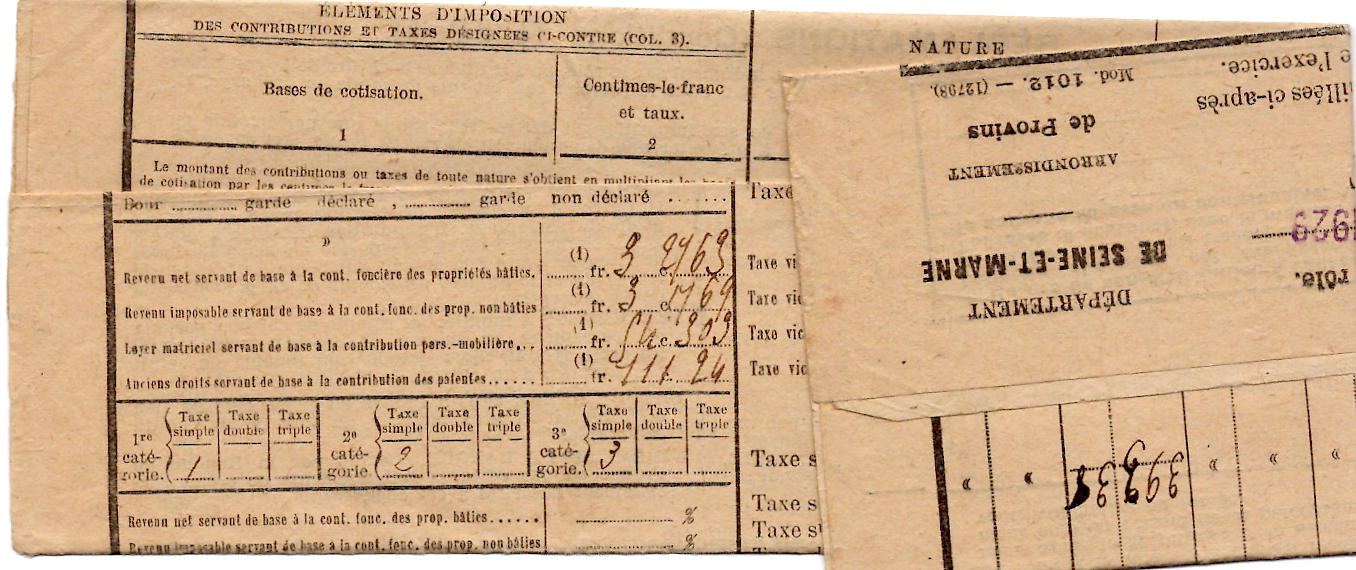 ÉLÉMENTS D'IMPOSITION
DES CONTRIBUTIONS ET TAXES DÉSIGNÉES CI-CONTRE (COL. 3).
Bases de cotisation.
Centimes-le-franc
et taux.
1
2
Le montant des contributions ou taxes de toute nature s'obtient en multipliant les
de cotisation par les centimes le
Pour ........ garde déclaré , ........ garde non déclaré .......
»
Revenu net servant de base à la cont. foncière des propriétés bâties. (1) fr. 3 c. 2763
Revenu imposable servant de base à la cont. fonc. des prop. non bâties (1) fr. 3 c. 2769
Loyer matriciel servant de base à la contribution pers.-mobilière... (1) fr. c. 303
Anciens droits servant de base à la contribution des patentes...... (1) fr. 111 24
1re catégorie. Taxe simple 1 Taxe double Taxe triple
2e catégorie. Taxe simple 2 Taxe double Taxe triple
3e catégorie. Taxe simple 3 Taxe double Taxe triple
Revenu net servant de base à la cont. fonc. des prop. bâties...... %
Revenu imposable servant de base à la cont. fonc. des prop. non bâties %
Taxe
Taxe vi
Taxe vic
Taxe vic
Taxe vic
Taxe s
Taxe s
Taxe s
NATURE
DÉPARTEMENT
DE SEINE-ET-MARNE
ARRONDISSEMENT
de Provins
Mod. 1012. — (12798).
rôle.
1929
illées ci-après
e l'exercice.
« « « « «